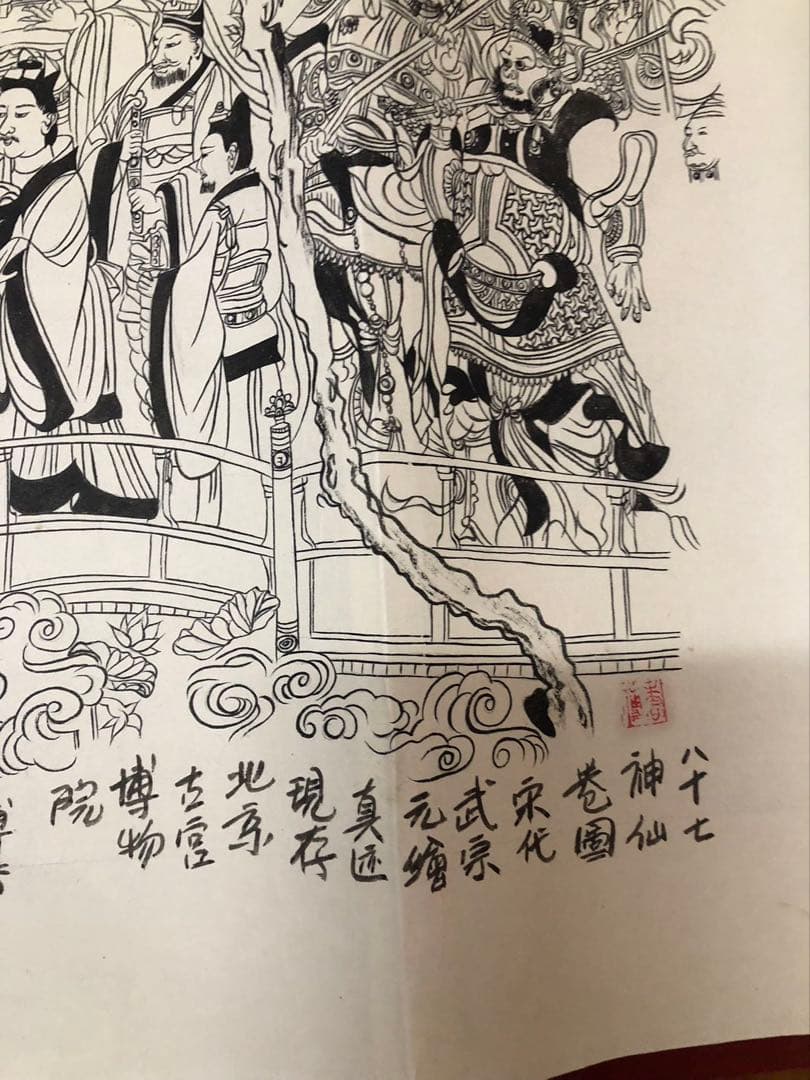 八十七
神仙
卷圖
宋代
武宗
元繪
真迹
現存
北京
古宫
博物
院